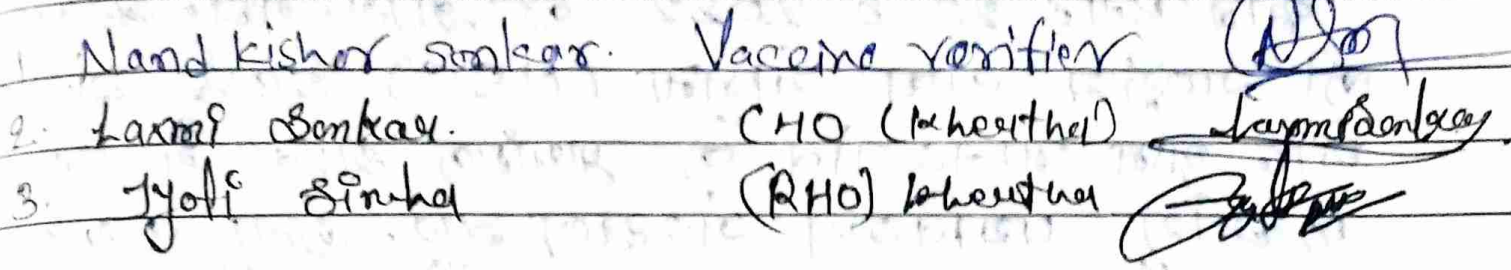 1. Nand kishor sonkar. Vaccine verifier
2. Laxmi Sonkar. CHO (Kheertha) Laxmi Sonkar
3. Jyoti Sinha (RHO) Kheertha